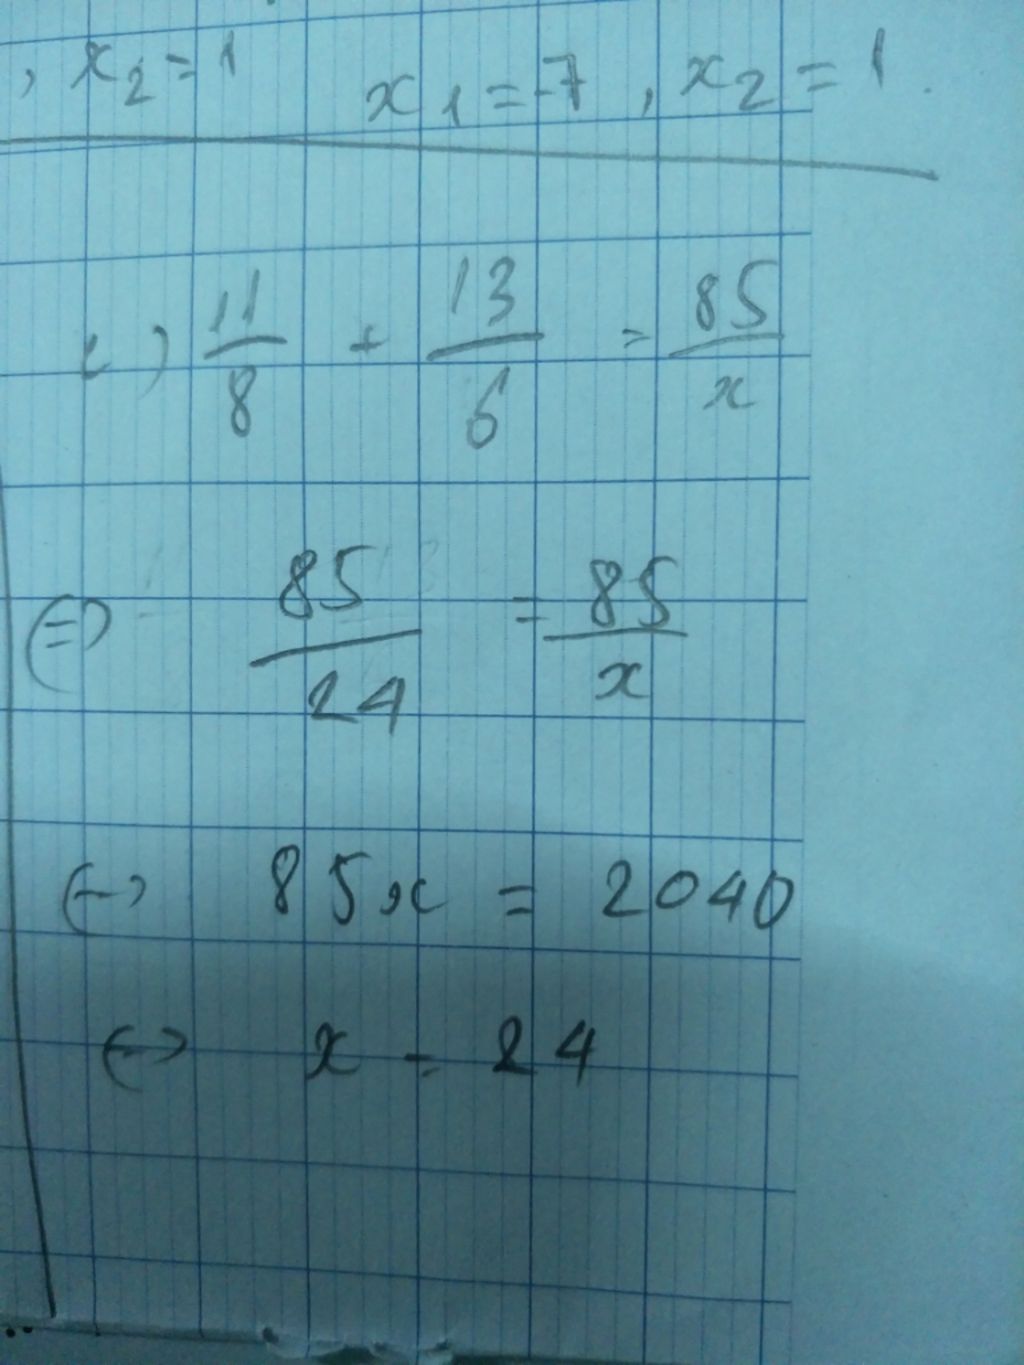 , x₂ = 1 x₁ = -7 , x₂ = 1 .
c) 11/8 + 13/6 = 85/x
⇔ 85/24 = 85/x
↔ 85x = 2040
↔ x = 24